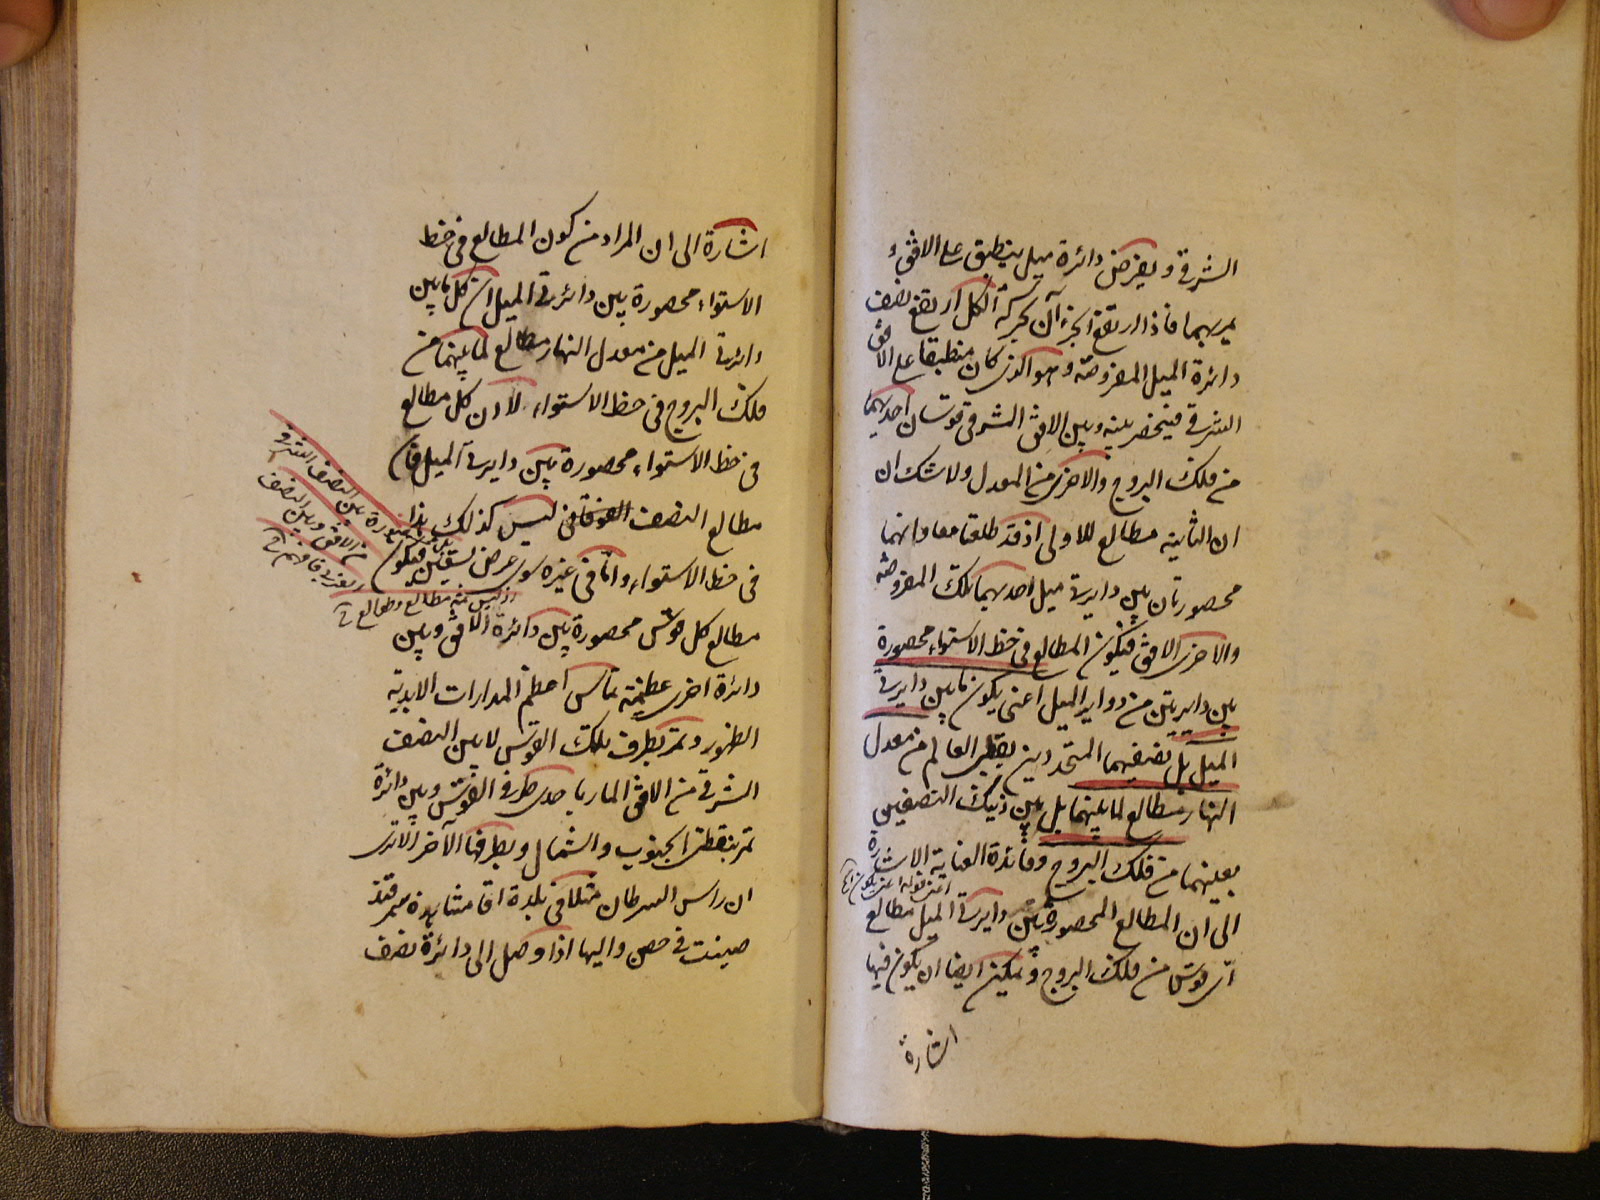 الشرقى ويفرض دائرة ميل ينطبق على الافق و
يمر بهما فاذا ارتفع الجزءان بحركة الكل ارتفع نصف
دائرة الميل المفروضة وهو الذى كان منطبقا على الافق
الشرقى فينحصر بينه وبين الافق الشرقى قوسان احديهما
من فلك البروج والاخرى من المعدل ولا شك ان
ان الثانية مطالع للاولى اذ قد طلعتا معا وانهما
محصورتان بين دايرتى ميل احديهما تلك المفروضة
والاخرى الافق فيكون المطالع فى خط الاستواء محصورة
بين دايرتين من دواير الميل اعنى يكون ما بين دايرتى
الميل بل نصفيهما المتحددين بقطبى العالم من معدل
النهار مطالع لما بينهما بل بين ذينك النصفين
بعينهما من فلك البروج وفائدة العناية الاشارة
اعنى قوله اعنى يكون الخ
الى ان المطالع المحصورة بين دايرتى الميل مطالع
اى قوس من فلك البروج ويمكن ايضا ان يكون فيها
اشارة
اشارة الى ان المراد من كون المطالع فى خط
الاستواء محصورة بين دائرتى الميل ان كل ما بين
دائرتى الميل من معدل النهار مطالع لما بينهما من
فلك البروج فى خط الاستواء لا ان كل مطالع
فى خط الاستواء محصورة بين دايرتى الميل فان
مطالع النصف ليس كذلك
بل محصورة بين النصف الشرقى
من الافق وبين النصف
الغربى فافهم
فى خط الاستواء واما فى غيره سوى عرض تسعين فيكون
اذ ليس ثمه مطالع وطوالع
مطالع كل قوس محصورة بين دائرة الافق وبين
دائرة اخرى عظيمة تماس اعظم المدارات الابدية
الظهور وتمر بطرف تلك القوس لا بين النصف
الشرقى من الافق المار باحدى طرفى القوس وبين دائرة
تمر بنقطتى الجنوب والشمال وبطرفها الآخر الا ترى
ان راس السرطان مثلا فى بلدة سمرقند
صينت فى حصن واليها اذا وصل الى دائرة نصف